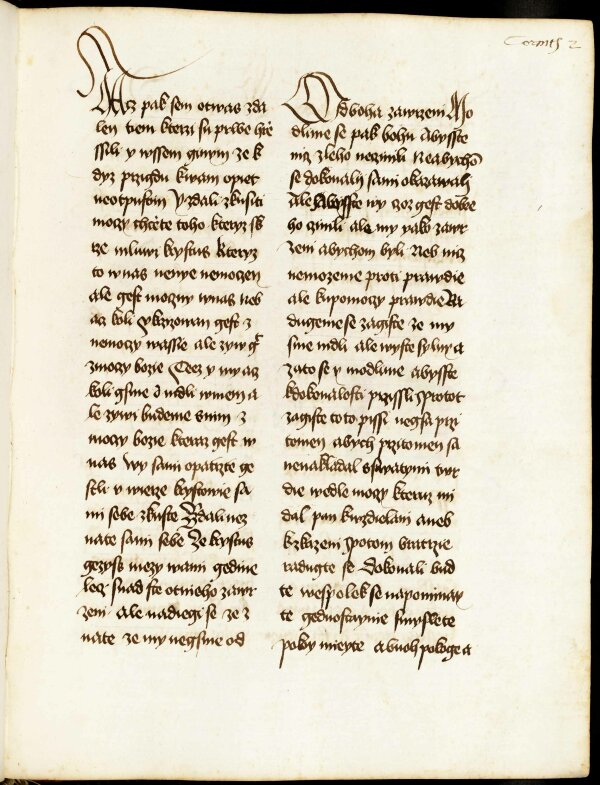 Corinth 2
Az pak sem otwas zda
len tiem kterzi su prwe hrze
ssili y wssem ginym ze k
dyz przigdu kwam opiet
neotpustim Y zdali zkusiti
moczy chcete toho kteryz sk
rze mluwi krystus kteryz
to wnas nenye nemoczen
ale gest moczny wnas neb
acz koli ukrzowan gest z
nemoczy wassie ale zyw gt
zmoczy bozie Neez y my acz
koli gsme i mdli wniem a
le zywi budeme snim z
moczy bozie kteraz gest w
nas Wy sami opatrzte ge
stli v wierze krystowie sa
mi sebe zkuste Zdali nez
nate sami sebe Ze krystus
gezyss mezy wami gedine
lecz snad ste otnieho zawr
zeni ale nadiegi se ze z
nate ze my negsme od
Odboha zawrzeni Mo
dlime se pak bohu Abysste
nicz zleho neczinili Neabychom
se dokonali sami okazawali
Ale Abysste wy czoz gest dobre
ho czinili ale my yako zawr
zeni abychom byli Neb nicz
nemozeme proti prawdie
ale kupomoczy prawdie Ra
dugeme se zagiste ze my
sme mdli ale wyste sylny a
zato se y modlime abysste
kdokonalosti przissli Protot
zagiste toto pissi negsa przi
tomen abych przitomen sa
nenakladal sswatymi twr
die wedle moczy kteruz mi
dal pan kwzdielani a neb
kzkazeni Potom bratrzie
radugte se Dokonali bud
te wespolek se napominay
te gednostaynie smyslete
pokoy mieyte a buoh pokoge a